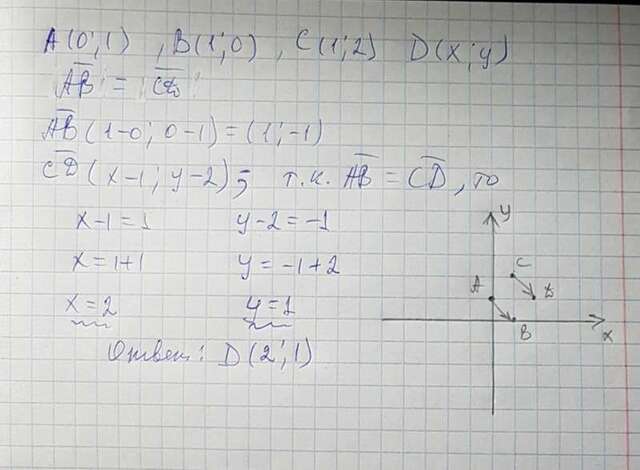 A(0;1) , B(1;0) , C(1;2) D(x;y)
AB = CD
AB(1-0; 0-1)=(1;-1)
CD(x-1; y-2); т.к. AB = CD, то
x-1=1 y-2=-1
x=1+1 y=-1+2
x=2 y=1
Ответ: D(2;1)
y
C
A
D
B
x